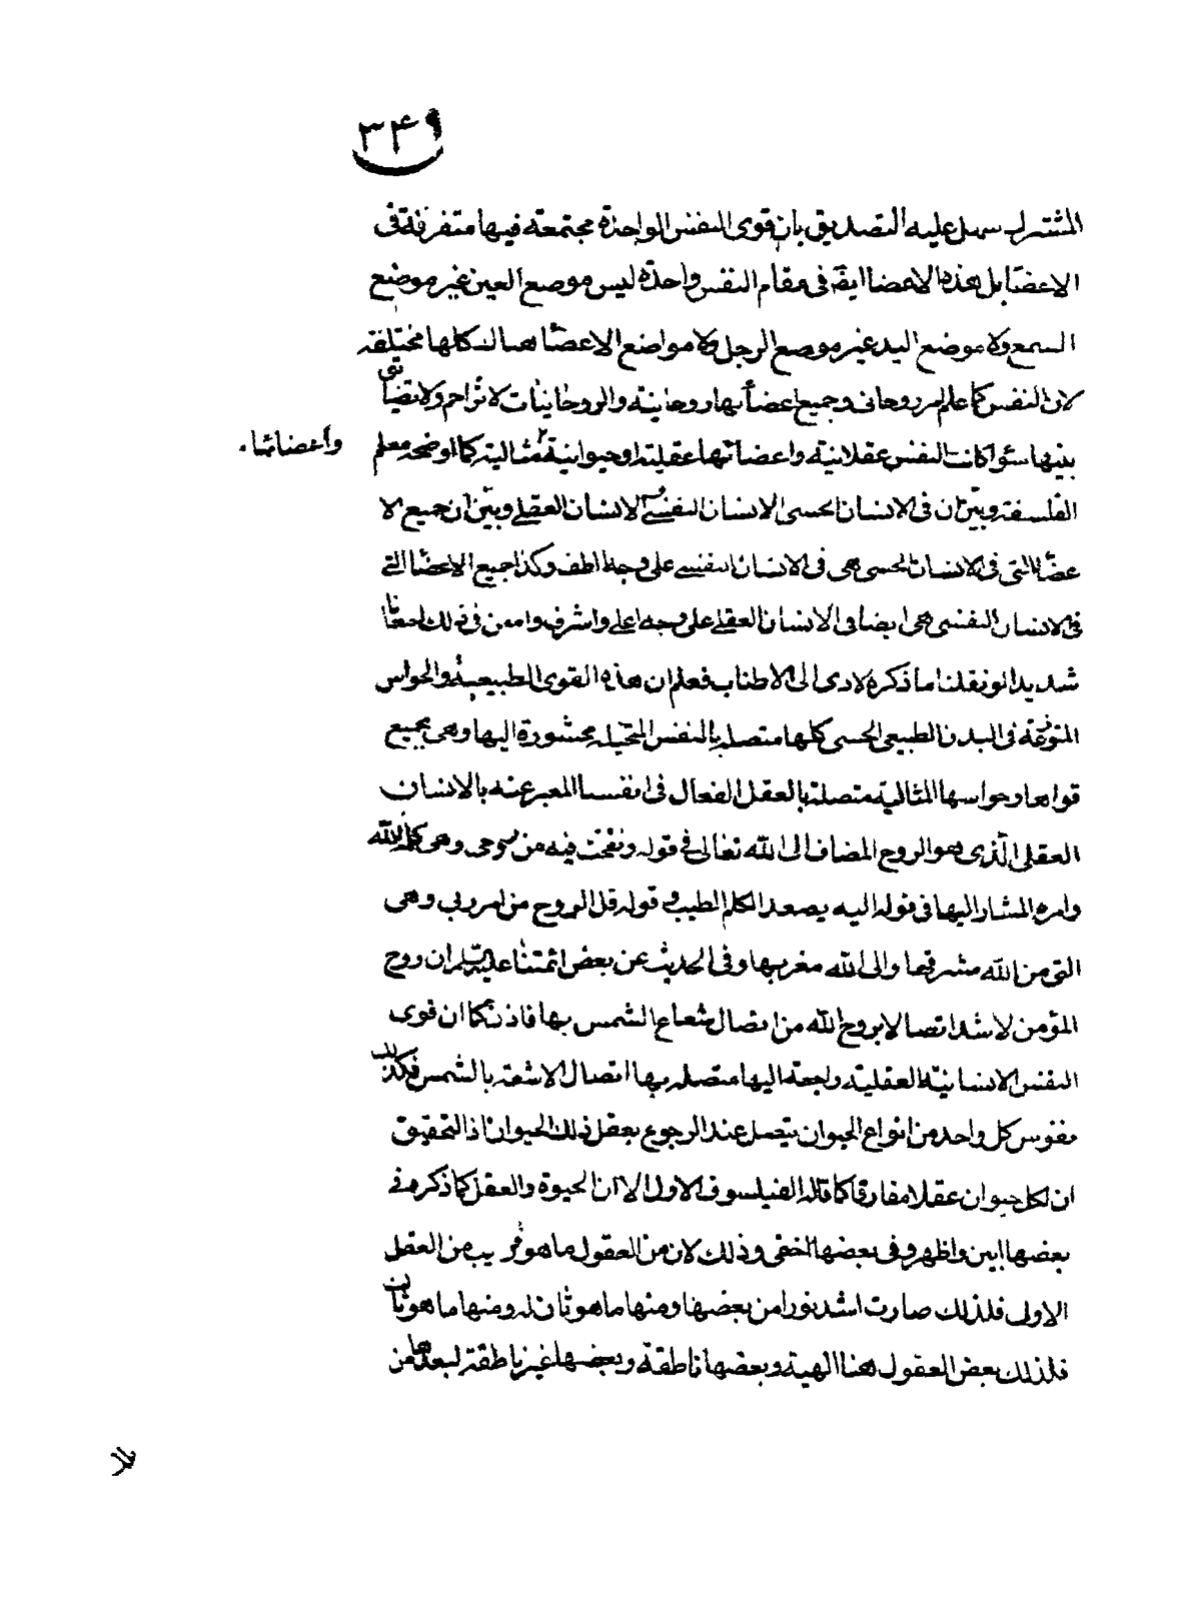 ٣٤٩
المشترك سهل عليه التصديق بان قوى النفس الواحدة مجتمعة فيها متفرقة فى
الاعضا بل هذه الاعضا ايضه فى مقام النفس واحدة ليس موضع العين غير موضع
السمع ولا موضع اليد غير موضع الرجل ولا مواضع الاعضا هنالك كلها مختلفة
لان النفس كما علم امر روحانى وجميع اعضائها روحانية والروحانيات لا تزاحم ولا تضيائق
بينها سوا كانت النفس عقلانية واعضائها عقلية او حيوانية مثالية كما اوضحه معلم
واعضائها.
الفلسفة وبيّن ان فى الانسان الحسى الانسان النفسى الانسان العقلى وبيّن ان جميع الا
عضا التى فى الانسان الحسى هى فى الانسان النفسى على وجه الطف وكذا جميع الاعضا التى
فى الانسان النفسى هى ايضا فى الانسان العقلى على وجه اعلى واشرف وامعن فى ذلك امعانا
شديدا لو نقلنا ما ذكره لادى الى الاطناب فعلم ان هذه القوى الطبيعية والحواس
المتوزعة فى البدن الطبيعى الحسى كلها متصلة بالنفس المتخيله محشورة اليها وهى بجميع
قواها وحواسها المثالية متصلة بالعقل الفعال فى انفسنا المعبر عنه بالانسان
العقلى الّذى هو الروح المضاف الى الله تعالى فى قوله ونفخت فيه من روحى وهى كلمة الله
وامره المشار اليها فى قوله اليه يصعد الكلم الطيب و قوله قل الروح من امر ربى وهى
التى من الله مشرقها والى الله مغربها وفى الحديث عن بعض ائمتنا عليه السلم ان روح
المؤمن لاشد اتصالا بروح الله من اتصال شعاع الشمس بها فاذن كما ان قوى
النفس الانسانية العقلية راجعة اليها متصله بها اتصال الاشعة بالشمس فكذلك
نفوس كل واحد من انواع الحيوان يتصل عند الرجوع بعقل ذلك الحيوان اذ التحقيق
ان لكل حيوان عقلا مفارقا كما قاله الفيلسوف الاول الا ان الحيوة والعقل كما ذكره فى
بعضها ابين واظهر وفى بعضها اخفى وذلك لان من العقول ما هو قريب من العقل
الاولى فلذلك صارت اشد نورا من بعضها ومنها ما هو ثان له ومنها ما هو ثالث
فلذلك بعض العقول هنا الهية وبعضها ناطقة وبعضها غير ناطقة لبعدها من